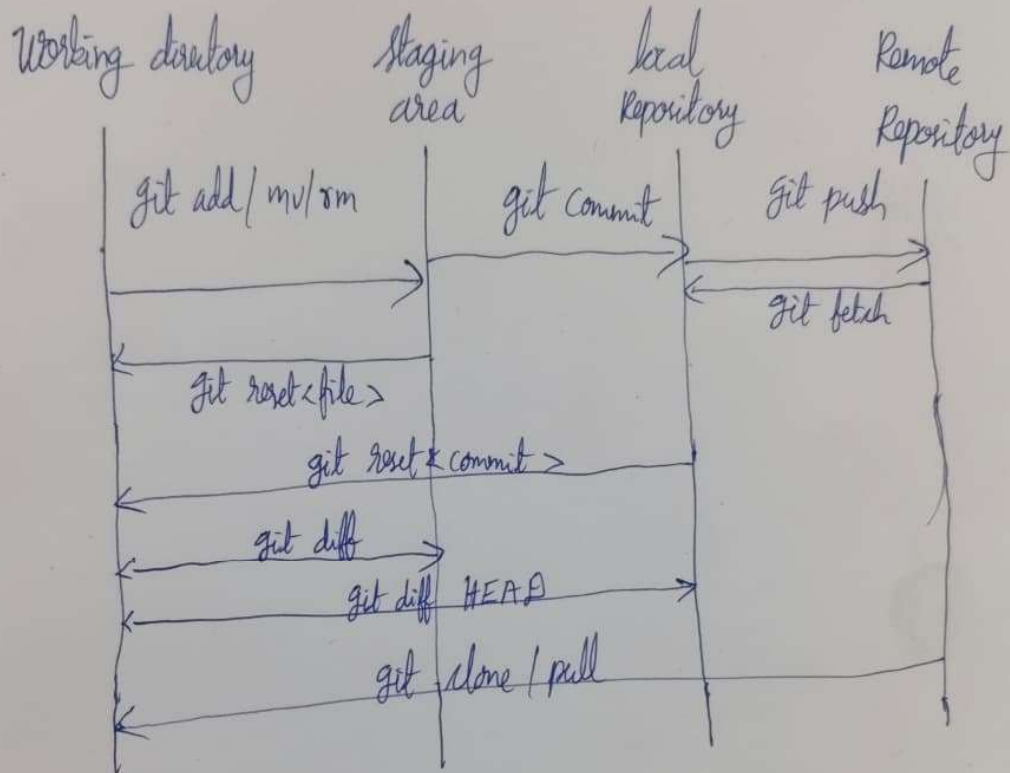 Working directory
Staging
area
local
Repository
Remote
Repository
git add/mv/rm
git commit
git push
git fetch
git reset<file>
git reset<commit>
git diff
git diff HEAD
git clone/pull